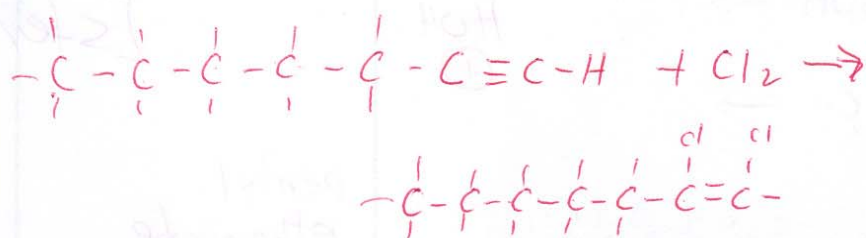 -C-C-C-C-C-C≡C-H + Cl2 →
Cl Cl
-C-C-C-C-C-C=C-